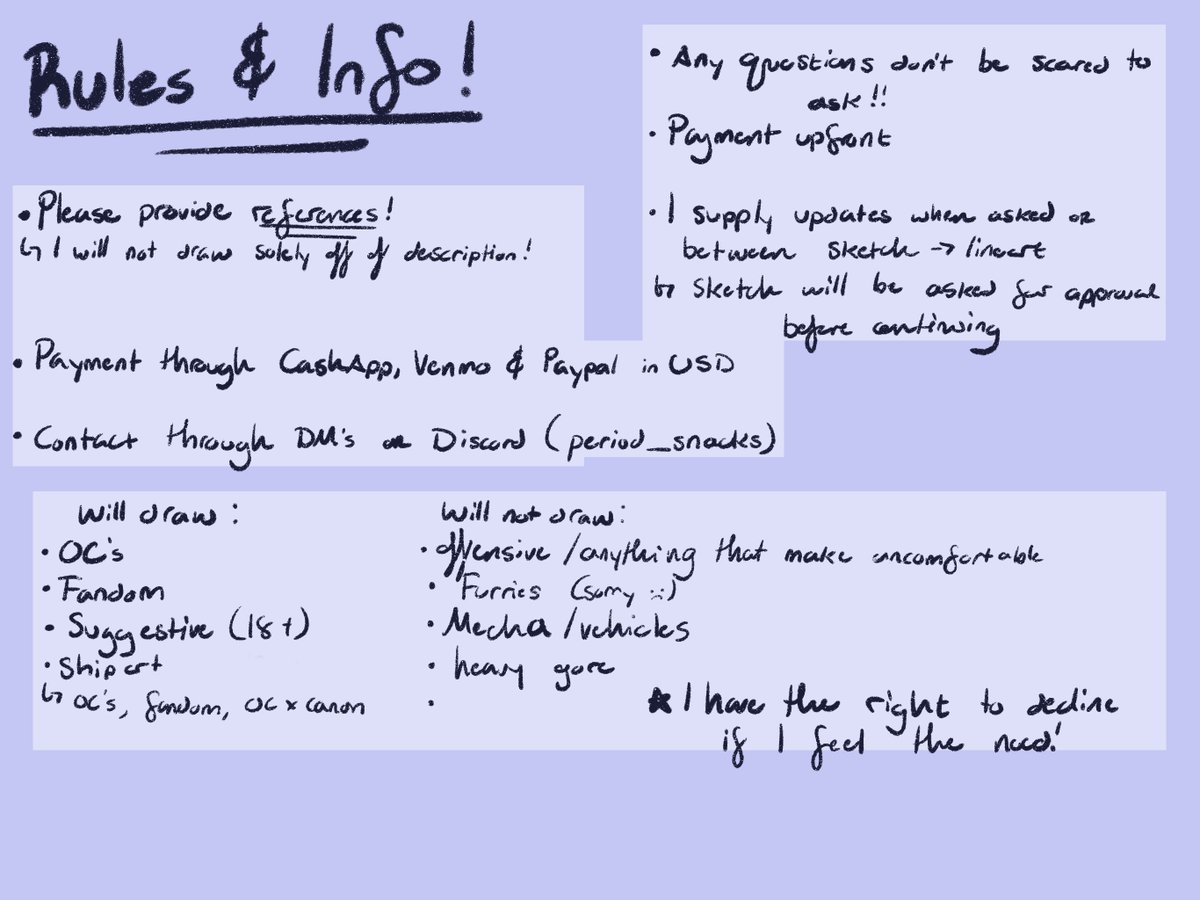 Rules & Info!
• Please provide references!
↳ I will not draw solely off of description!
• Payment through CashApp, Venmo & Paypal in USD
• Contact through DM's or Discord (period_snacks)
• Any questions don't be scared to
ask!!
• Payment upfront
• I supply updates when asked or
between sketch → lineart
↳ Sketch will be asked for approval
before continuing
Will draw:
• OC's
• Fandom
• Suggestive (18+)
• Ship art
↳ OC's, fandom, OC x canon
Will not draw:
• offensive/anything that make uncomfortable
• Furries (sorry :c)
• Mecha/vehicles
• heavy gore
•
★ I have the right to decline
if I feel the need!